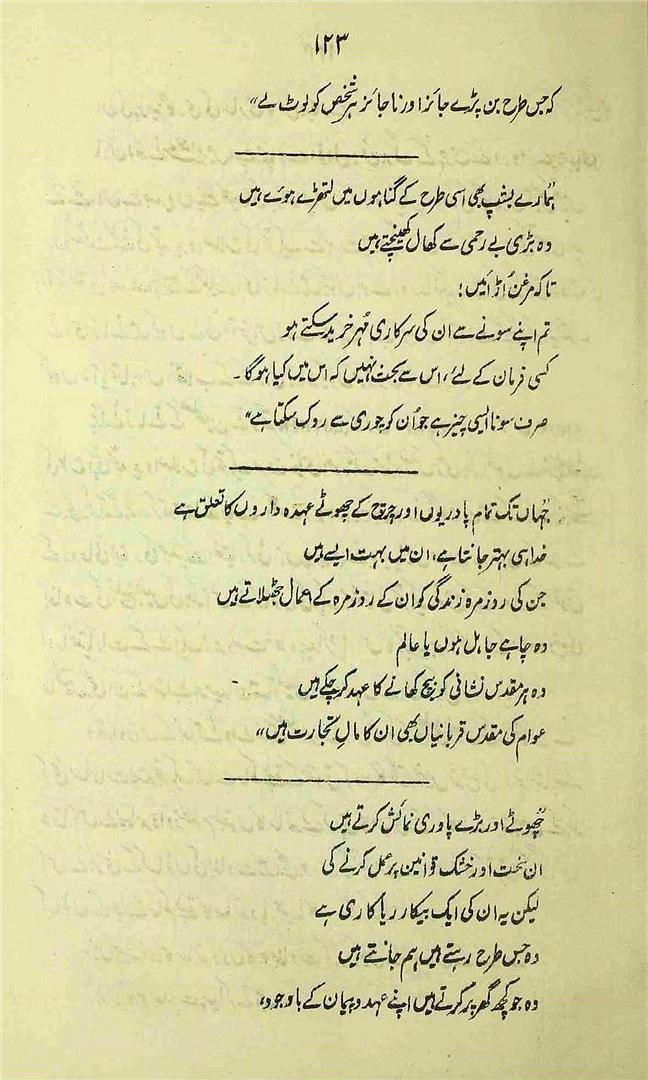 ۱۲۳
کہ جس طرح بن پڑے جائز اور ناجائز ہر شخص کو لوٹ لے"
"ہمارے بشپ بھی اسی طرح کے گناہوں میں لتھڑے ہوئے ہیں
وہ بڑی بے رحمی سے کھال کھینچتے ہیں
تاکہ مرغن اُڑائیں!
تم اپنے سونے سے ان کی سرکاری مُہر خرید سکتے ہو
کسی فرمان کے لئے، اس سے بحث نہیں کہ اس میں کیا ہوگا۔
صرف سونا ایسی چیز ہے جو اُن کو چوری سے روک سکتا ہے"
"جہاں تک تمام پادریوں اور چرچ کے چھوٹے عہدہ داروں کا تعلق ہے
خدا ہی بہتر جانتا ہے، ان میں بہت ایسے ہیں
جن کی روزمرہ زندگی کو ان کے روزمرہ کے اعمال جھٹلاتے ہیں
وہ چاہے جاہل ہوں یا عالم
وہ ہر مقدس نشانی کو بیچ کھانے کا عہد کر چکے ہیں
عوام کی مقدس قربانیاں بھی ان کا مالِ تجارت ہیں"
"چھوٹے اور بڑے پادری نمائش کرتے ہیں
ان سخت اور خشک قوانین پر عمل کرنے کی
لیکن یہ ان کی ایک بیکار ریاکاری ہے
وہ جس طرح رہتے ہیں ہم جانتے ہیں
وہ جو کچھ گھر پر کرتے ہیں اپنے عہد و پیمان کے باوجود،